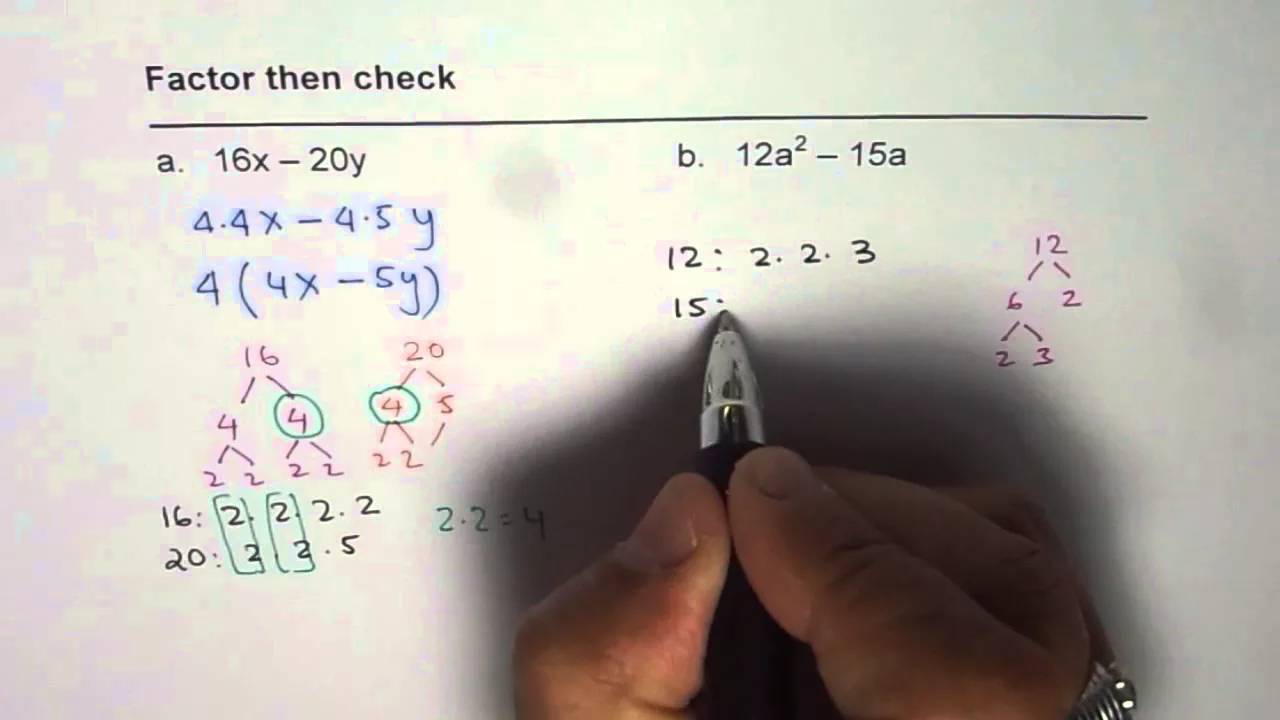 Factor then check
a. 16x – 20y
4.4x – 4.5 y
4 ( 4x – 5y)
16
4 4
2 2 2 2
20
4 5
2 2
16: 2. 2. 2. 2
20: 2 . 2 . 5
2.2 = 4
b. 12a² – 15a
12: 2. 2. 3
15:
12
6 2
2 3